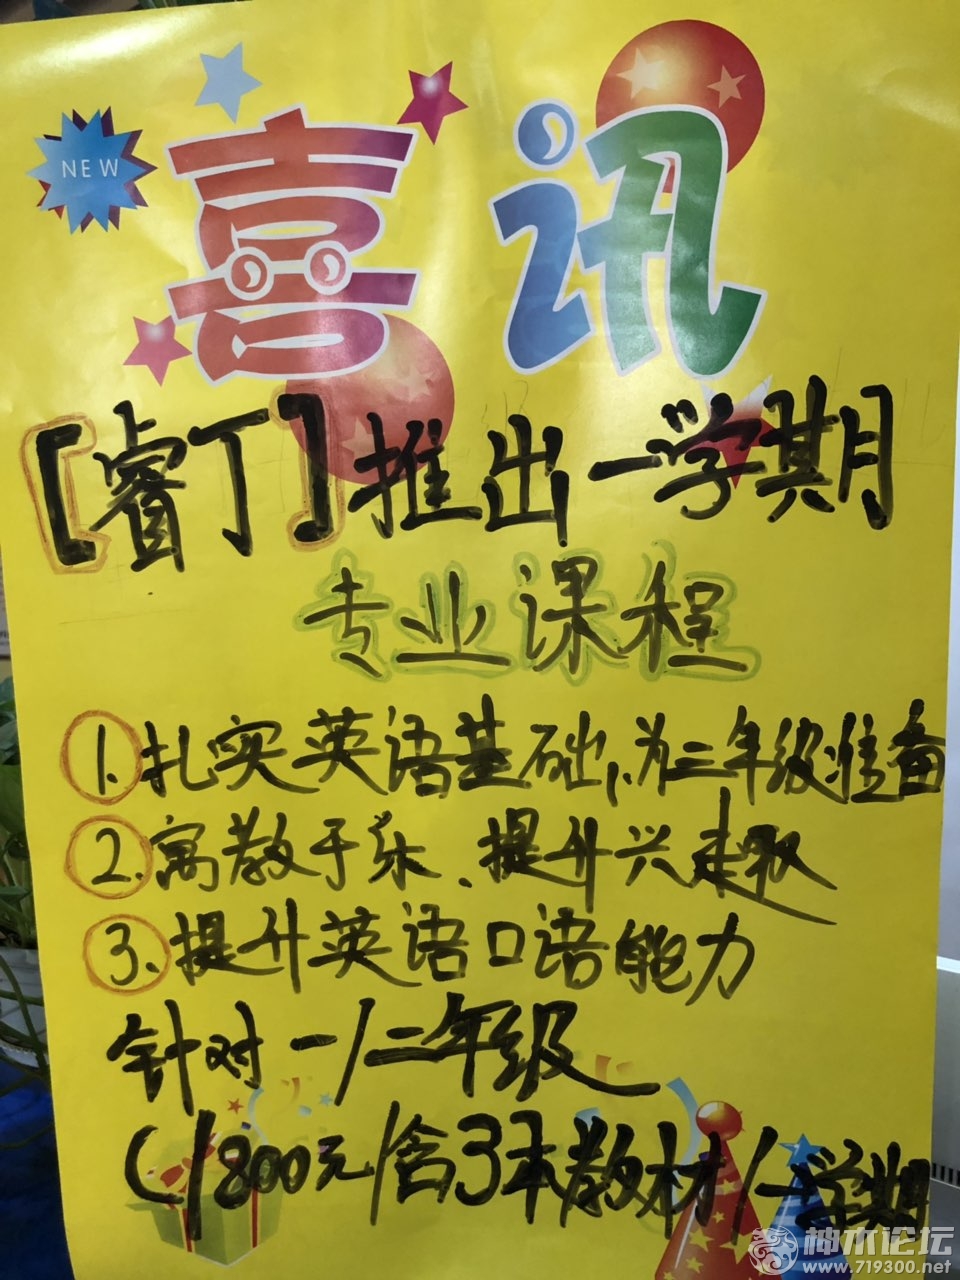 NEW
喜讯
【睿丁】推出一学期
专业课程
1.扎实英语基础,为三年级准备
2.寓教于乐、提升兴趣
3.提升英语口语能力
针对一/二年级
(1800元/含3本教材/一学期
神木论坛
www.719300.net